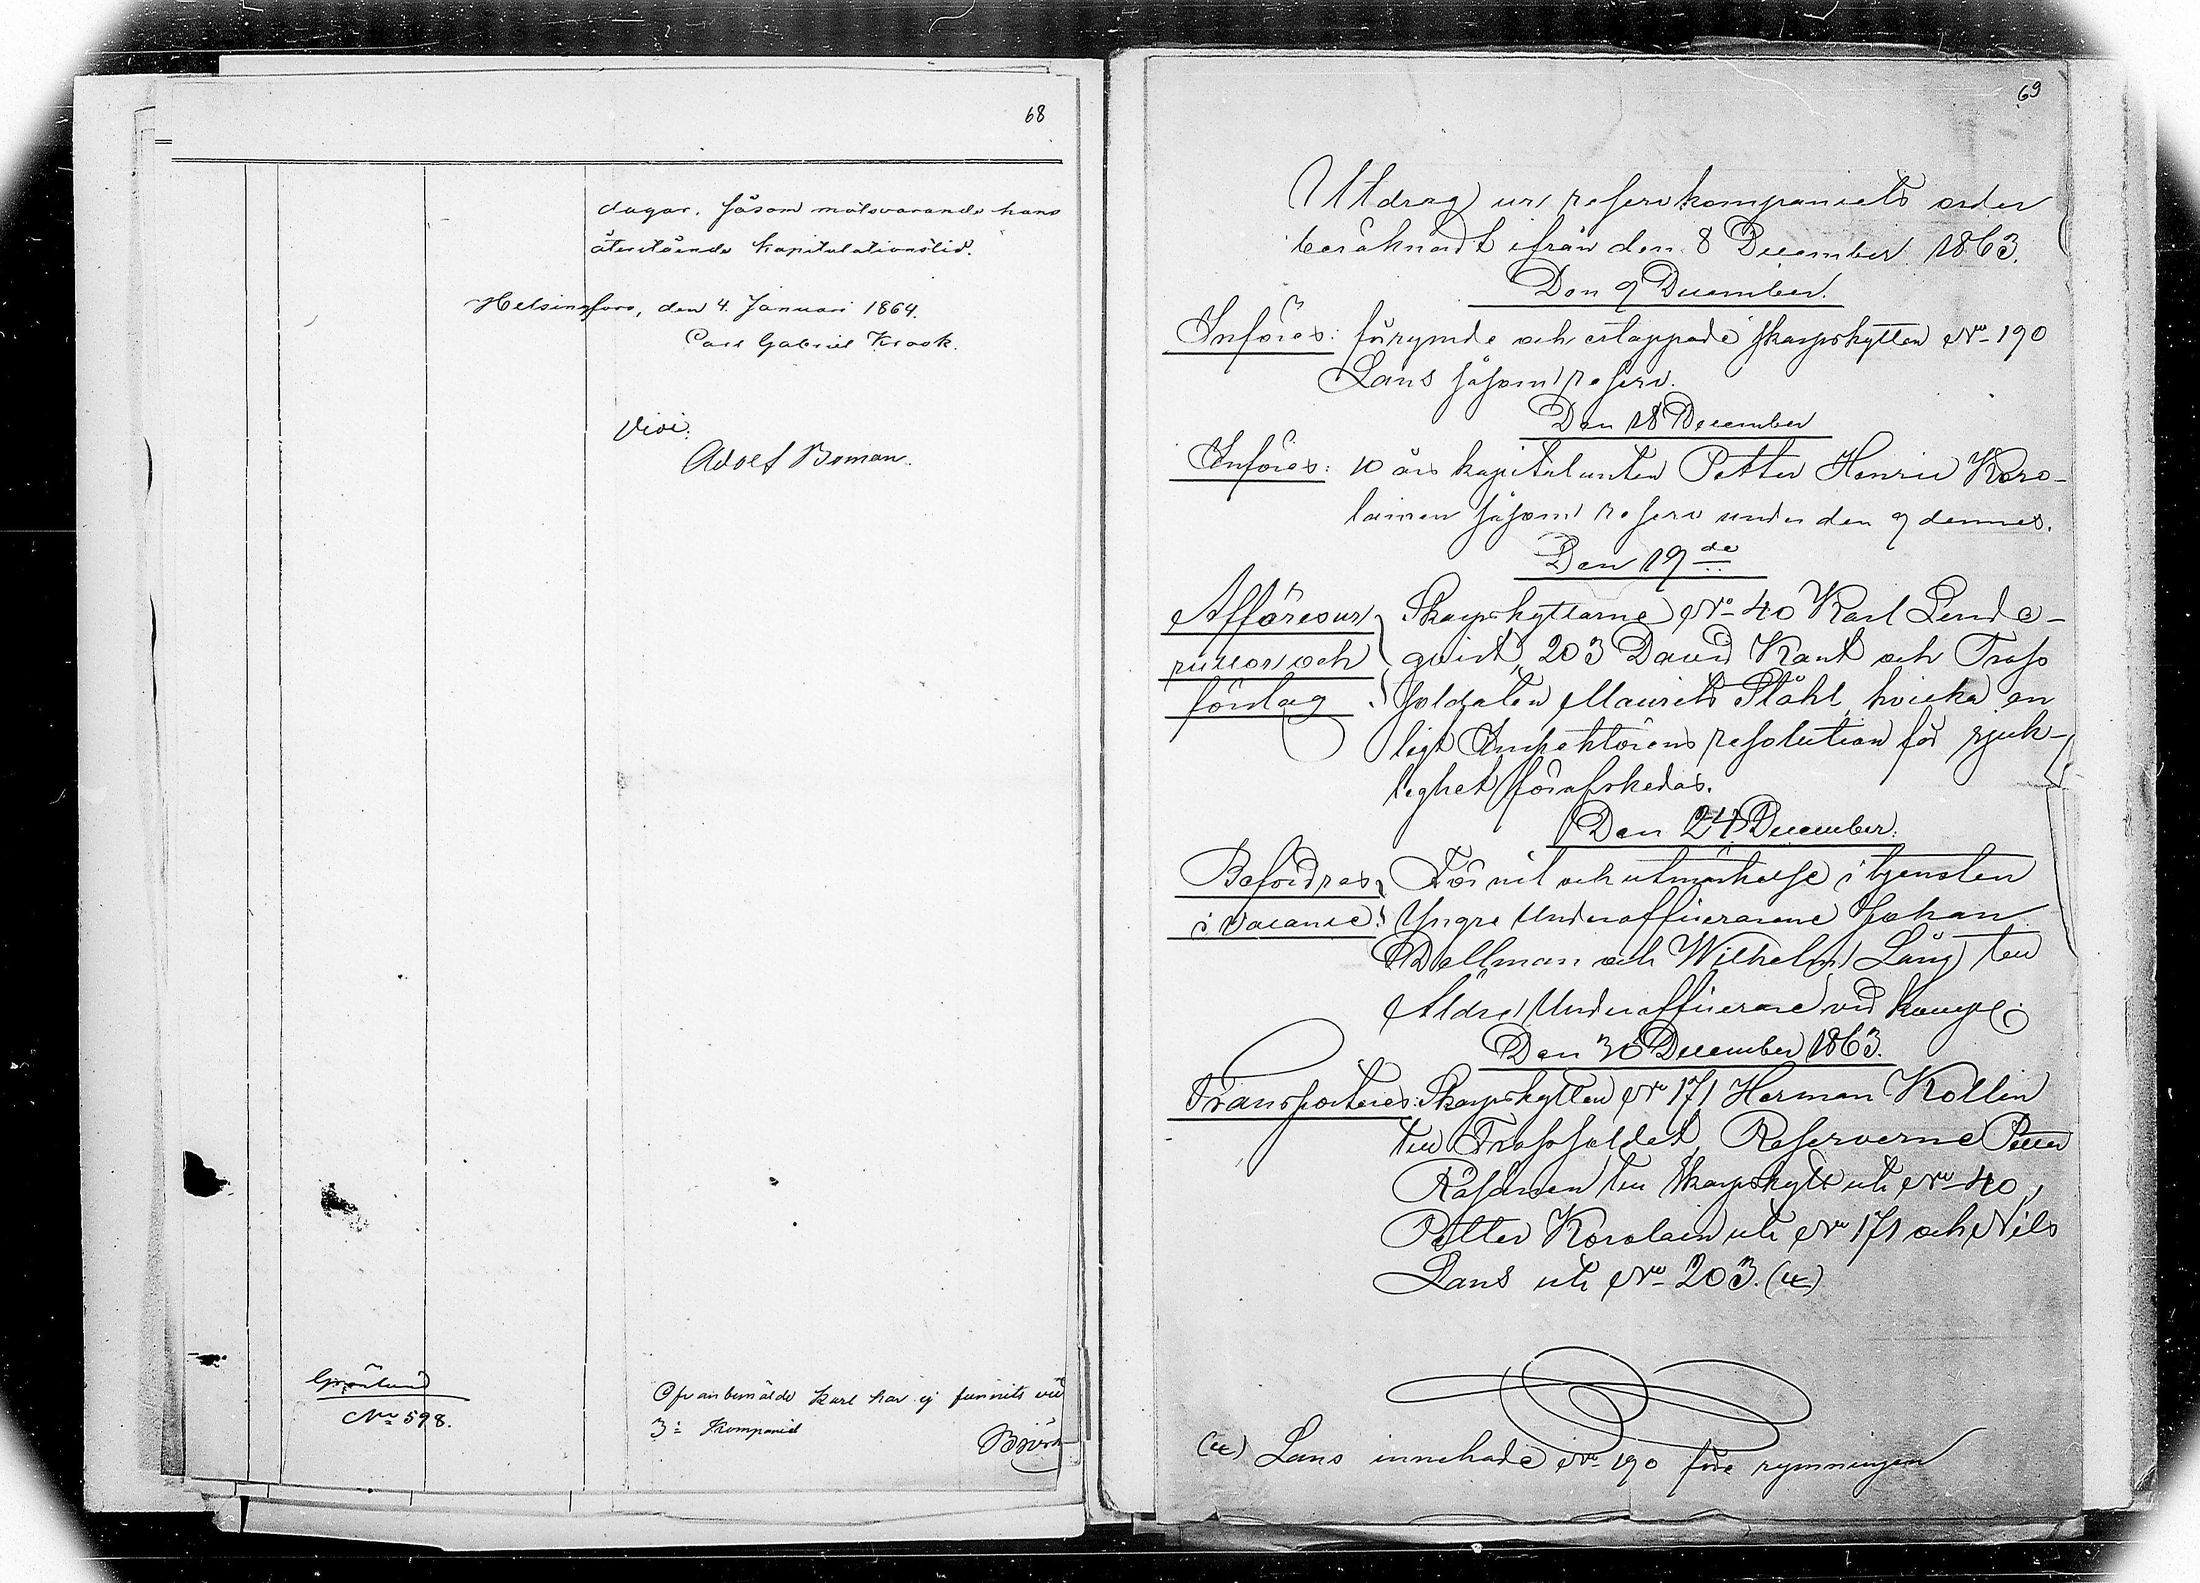 68
dagar, såsom motsvarande hans
återstående kapitulationstid.
Helsingfors, den 4. Januari 1864.
Carl Gabriel Krook.
Vidi:
Adolf Boman.
Grönlund
No 598.
Ofvanbemälde karl har ej funnits vid
3e Kompaniet
69
Utdrag ur reservkompaniets order
beräknadt ifrån den 8 December 1863.
Den 9 December.
Införes: förrymde och ertappade skarpskytten No 190
Lans såsom reserv.
Den 18 December
Införes: 10 års kapitulanten Petter Henric Koro-
lainen såsom reserv under den 9 dennes.
Den 19de
Afföres ur Skarpskyttarne No 40 Karl Lind
rullor och qvist, 203 David Kant och Tross
förslag Soldaten Maurits Ståhl, hvilka en
ligt Inspektörens resolution för sjuk-
lighet förafskedas.
Den 24 December.
Befordras För nit och utmärkelse i tjensten
i vacance: Yngre Underofficerarne Johan
Dellman och Wilhelm Lång till
Äldre Underofficerare vid komp.
Den 30 December 1863.
Transporteres: Skarpskytten No 171 Herman Kollin
till Trossoldat, Reserverne Petter
Räsänen till skarpskytt uti No 40,
Petter Korolain uti No 171 och Nils
Lans uti No 203. (x)
(x) Lans innehade No 190 före rymningen